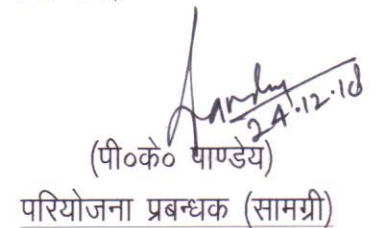 24.12.18
(पी०के० पाण्डेय)
परियोजना प्रबन्धक (सामग्री)